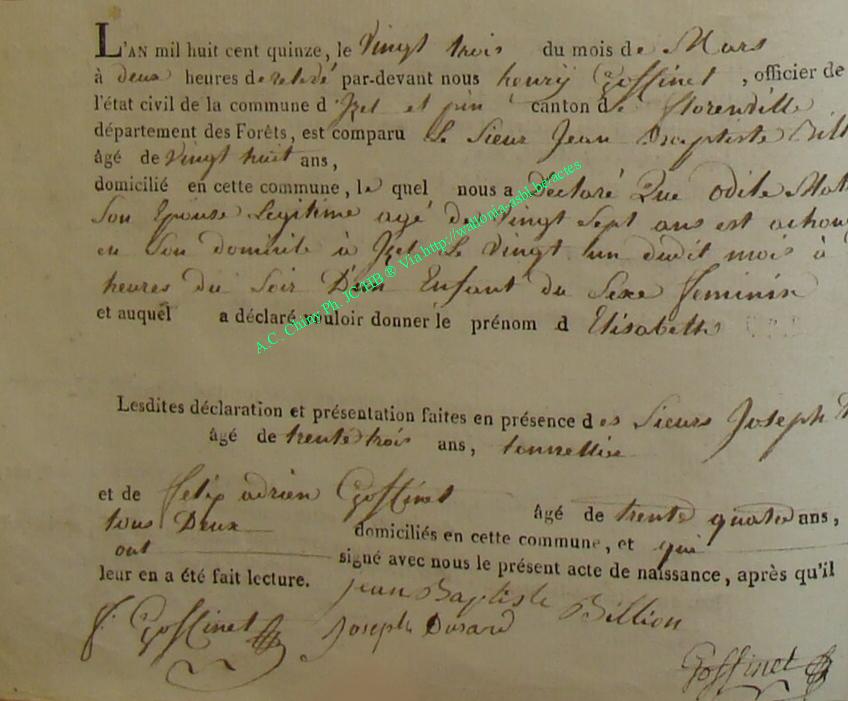 L'AN mil huit cent quinze, le Vingt trois du mois de Mars
à deux heures de relevé par-devant nous henry Goffinet, officier de
l'état civil de la commune d'Izel et pin canton de florenville
département des Forêts, est comparu Le Sieur Jean Baptiste Bill
âgé de Vingt huit ans,
domicilié en cette commune, le quel nous a Déclaré Que odile Mat
Son Epouse Legitime agé de Vingt Sept ans est achou
en Son domicile à Izel Le Vingt un dudit mois à
heures du Soir D'un Enfant du Sexe feminin
et auquel a déclaré vouloir donner le prénom d Elisabeth
A.C. Chiny Ph. JC HB ® Via http://wallonia-asbl.be/actes
Lesdites déclaration et présentation faites en présence des Sieurs Joseph
âgé de trente trois ans, tonnellier
et de felix adrien Goffinet
âgé de trente quatre ans,
tous Deux domiciliés en cette commune, et qui
ont signé avec nous le présent acte de naissance, après qu'il
leur en a été fait lecture.
Jean Baptiste Billion
f. Goffinet Joseph Dusard
Goffinet